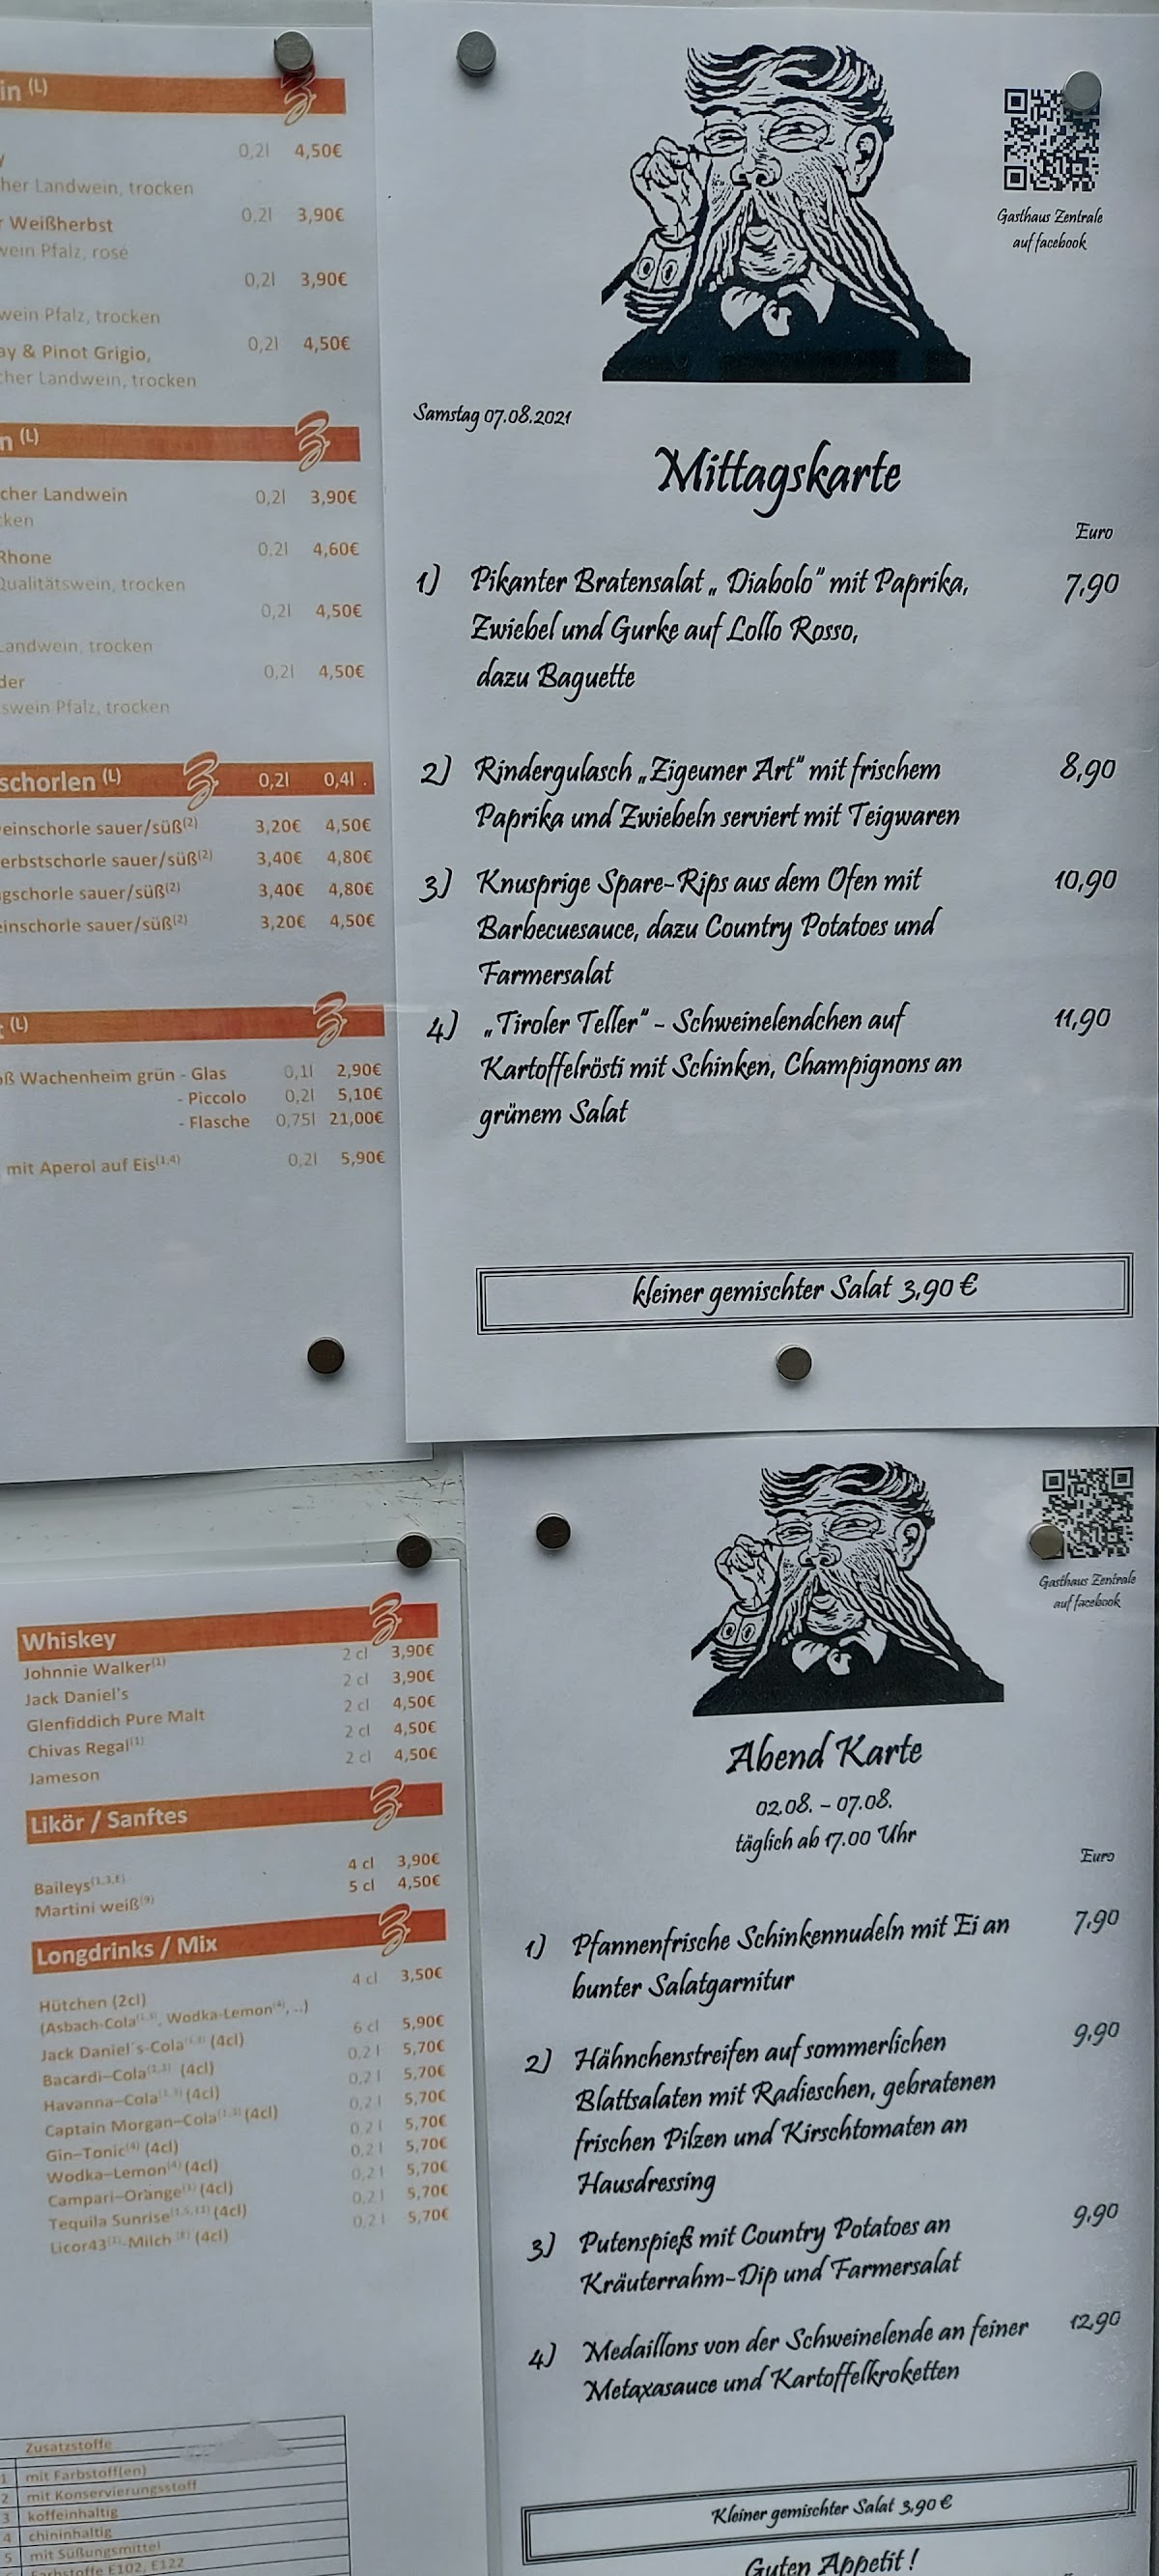 in (L)
0,2l 4,50€
her Landwein, trocken
r Weißherbst 0,2l 3,90€
wein Pfalz, rosé
0,2l 3,90€
wein Pfalz, trocken
ay & Pinot Grigio, 0,2l 4,50€
cher Landwein, trocken
n (L)
cher Landwein 0,2l 3,90€
cken
Rhone 0,2l 4,60€
Qualitätswein, trocken
0,2l 4,50€
Landwein, trocken
der 0,2l 4,50€
swein Pfalz, trocken
schorlen (L) 0,2l 0,4l
einschorle sauer/süß(2) 3,20€ 4,50€
erbstschorle sauer/süß(2) 3,40€ 4,80€
gschorle sauer/süß(2) 3,40€ 4,80€
einschorle sauer/süß(2) 3,20€ 4,50€
(L)
oß Wachenheim grün - Glas 0,1l 2,90€
- Piccolo 0,2l 5,10€
- Flasche 0,75l 21,00€
mit Aperol auf Eis(1,4) 0,2l 5,90€
Gasthaus Zentrale
auf facebook
Samstag 07.08.2021
Mittagskarte
Euro
1) Pikanter Bratensalat „ Diabolo“ mit Paprika, 7,90
Zwiebel und Gurke auf Lollo Rosso,
dazu Baguette
2) Rindergulasch „Zigeuner Art“ mit frischem 8,90
Paprika und Zwiebeln serviert mit Teigwaren
3) Knusprige Spare-Rips aus dem Ofen mit 10,90
Barbecuesauce, dazu Country Potatoes und
Farmersalat
4) „Tiroler Teller“ - Schweinelendchen auf 11,90
Kartoffelrösti mit Schinken, Champignons an
grünem Salat
kleiner gemischter Salat 3,90 €
Whiskey
Johnnie Walker(1) 2 cl 3,90€
Jack Daniel's 2 cl 3,90€
Glenfiddich Pure Malt 2 cl 4,50€
Chivas Regal(1) 2 cl 4,50€
Jameson 2 cl 4,50€
Likör / Sanftes
Baileys 4 cl 3,90€
Martini weiß(9) 5 cl 4,50€
Longdrinks / Mix
Hütchen (2cl) 4 cl 3,50€
(Asbach-Cola, Wodka-Lemon(4), ..)
Jack Daniel's-Cola (4cl) 6 cl 5,90€
Bacardi–Cola (4cl) 0,2 l 5,70€
Havanna–Cola (4cl) 0,2 l 5,70€
Captain Morgan–Cola (4cl) 0,2 l 5,70€
Gin–Tonic(4) (4cl) 0,2 l 5,70€
Wodka–Lemon(4) (4cl) 0,2 l 5,70€
Campari–Orange (4cl) 0,2 l 5,70€
Tequila Sunrise (4cl) 0,2 l 5,70€
Licor43 -Milch (4cl) 0,2 l 5,70€
Zusatzstoffe
1 mit Farbstoff(en)
2 mit Konservierungsstoff
3 koffeinhaltig
4 chininhaltig
5 mit Süßungsmittel
Farbstoffe E102, E122
Gasthaus Zentrale
auf facebook
Abend Karte
02.08. - 07.08.
täglich ab 17.00 Uhr
Euro
1) Pfannenfrische Schinkennudeln mit Ei an 7,90
bunter Salatgarnitur
2) Hähnchenstreifen auf sommerlichen 9,90
Blattsalaten mit Radieschen, gebratenen
frischen Pilzen und Kirschtomaten an
Hausdressing
3) Putenspieß mit Country Potatoes an 9,90
Kräuterrahm-Dip und Farmersalat
4) Medaillons von der Schweinelende an feiner 12,90
Metaxasauce und Kartoffelkroketten
Kleiner gemischter Salat 3,90 €
Guten Appetit !